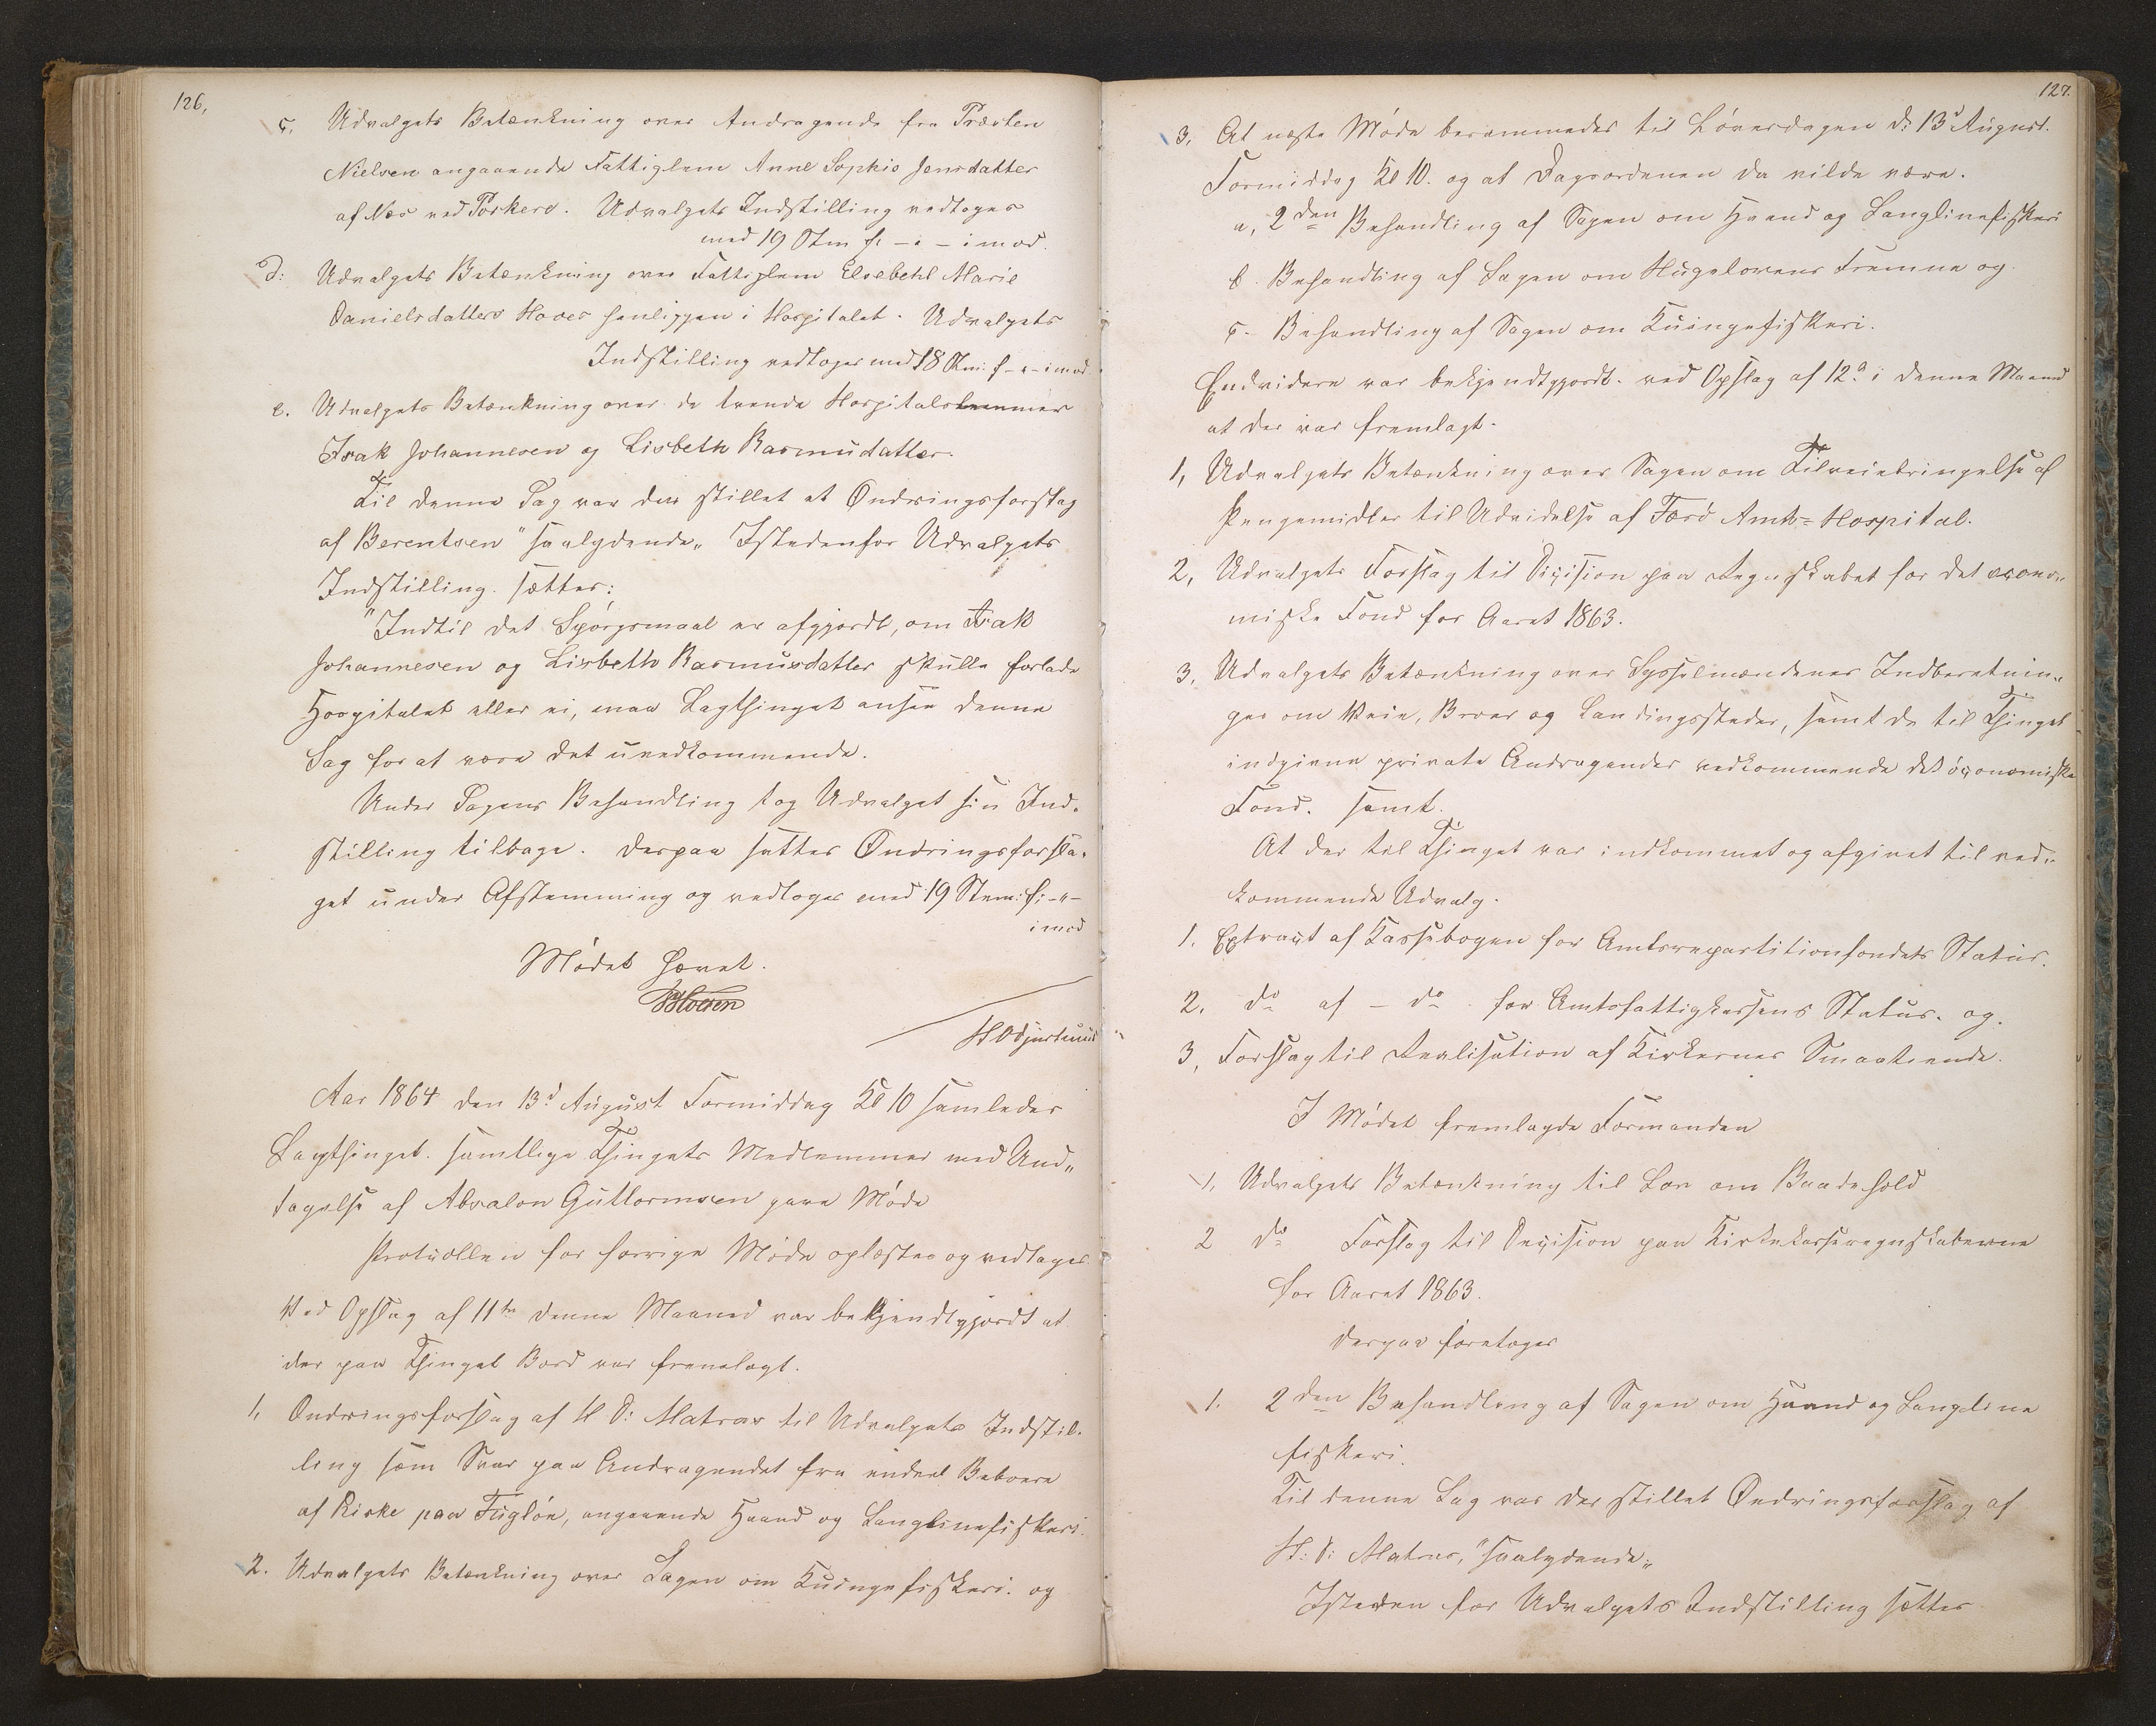 126,
c. Udvalgets Betænkning over Andragende fra Præsten
Nielsen angaaende Fattiglem Anne Sophie Jensdatter
af Næs ved Porkere. Udvalgets Indstilling vedtoges
med 19 Stm f: – " – imod.
d: Udvalgets Betænkning over Fattiglem Elsebeth Marie
Danielsdatters Hoves henliggen i Hospitalet. Udvalgets
Indstilling vedtoges med 18 Stm: f – " – imod.
e. Udvalgets Betænkning over de tvende Hospitalslemmer
Isak Johannesen og Lisbeth Rasmusdatter.
Til denne Sag var der stillet et Ændringsforslag
af Berentsen "saalydende„ Istedenfor Udvalgets
Indstilling sættes:
"Indtil det Spörgsmaal er afgjordt, om Isak
Johannesen og Lisbeth Rasmusdatter skulle forlade
Hospitalet eller ei, maa Lagthinget ansee denne
Sag for at være det uvedkommende.
Under Sagens Behandling tog Udvalget sin Ind-
stilling tilbage. Derpaa sattes Ændringsforsla-
get under Afstemning og vedtoges med 19 Stem: f: – " –
imod
Mödet hævet.
Aar 1864 den 13d August Formiddag Kl 10 samledes
Lagthinget. samtlige Thingets Medlemmer med Und„
tagelse af Absalon Guttormsen gave Möde
Protocollen for forrige Möde oplæstes og vedtages
Ved Opslag af 11te denne Maaned var bekjendtgjordt at
der paa Thinget Bord var fremlagt.
1, Ændringsforslag af H D: Matras til Udvalgets Indstil-
ling som Svar paa Andragendet fra endeel Beboere
af Kirke paa Fuglöe, angaaende Haand og Langlinefiskeri.
2. Udvalgets Betænkning over Sagen om Kuingefiskeri. og
127.
3, At næste Möde berammedes til Löverdagen d: 13d August.
Formiddag Kl 10. og at Dagsordenen da vilde være.
a, 2den Behandling af Sagen om Haand og Langlinefiskeri
b. Behandling af Sagen om Hugelovens Fremme og
c. Behandling af Sagen om Kuingefiskeri.
Endvidere var bekjendtgjordt. ved Opslag af 12d i denne Maaned
at der var fremlagt.
1, Udvalgets Betænkning over Sagen om Tilveiebringelse af
Pengemidler til Udvidelse af Færö Amts-Hospital.
2, Udvalgets Forslag til Dicision paa Regnskabet for det oecono„
miske Fond for Aaret 1863.
3, Udvalgets Betænkning over Sysselmændenes Indberetnin„
ger om Veie, Broer og Landingssteder, samt de til Thinget
indgivne private Andragender vedkommende det öconomiske
Fond. samt.
At der til Thinget var indkommet og afgivet til ved„
kommende Udvalg.
1. Extract af Kassebogen for Amtsrepartitionsfondets Status.
2. do af – do for Amtsfattigkassens Status. og.
3, Forslag til Realisation af Kirkernes Smaatiende.
I Mödet fremlagde Formanden
1, Udvalgets Betænkning til Lov om Baadehold
2 do Forslag til Decision paa Kirkekasseregnskaberne
for Aaret 1863.
derpaa foretoges
1. 2den Behandling af Sagen om Haand og Langline
fiskeri.
Til denne Sag var der stillet Ændringsforslag af
H: D: Matras, "saalydende„
Isteden for Udvalgets Indstilling sættes